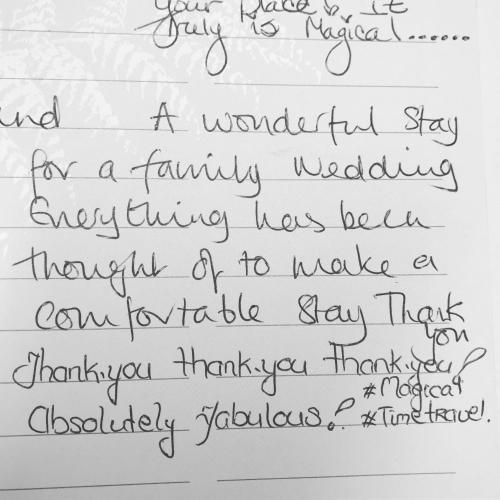 your place, It
Truly is Magical.......
A wonderful Stay
for a family wedding
Everything has been
thought of to make a
comfortable stay Thank
you
Thank.you thank.you Thank.you!
#Magical
Absolutely Fabulous! #Timetravel.